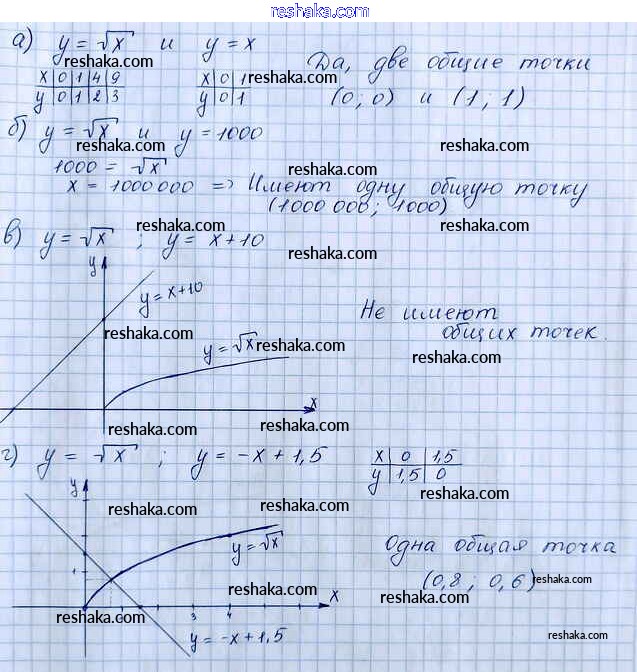 reshaka.com
а) y = √x и y = x
reshaka.com
x 0 1 4 9
y 0 1 2 3
x 0 1
y 0 1
reshaka.com
Да, две общие точки
(0; 0) и (1; 1)
б) y = √x и y = 1000
reshaka.com
1000 = √x
reshaka.com
x = 1000 000 => Имеют одну общую точку
(1000 000; 1000)
reshaka.com
в) y = √x ; y = x+10
reshaka.com
y
y = x+10
Не имеют
общих точек.
reshaka.com
y = √x
reshaka.com
reshaka.com
x
reshaka.com
г) y = √x ; y = -x + 1,5
x 0 1,5
y 1,5 0
reshaka.com
y
reshaka.com
reshaka.com
y = √x
Одна общая точка
1
(0,8 ; 0,6)
reshaka.com
reshaka.com
reshaka.com
x
reshaka.com
3 4
y = -x + 1,5
reshaka.com